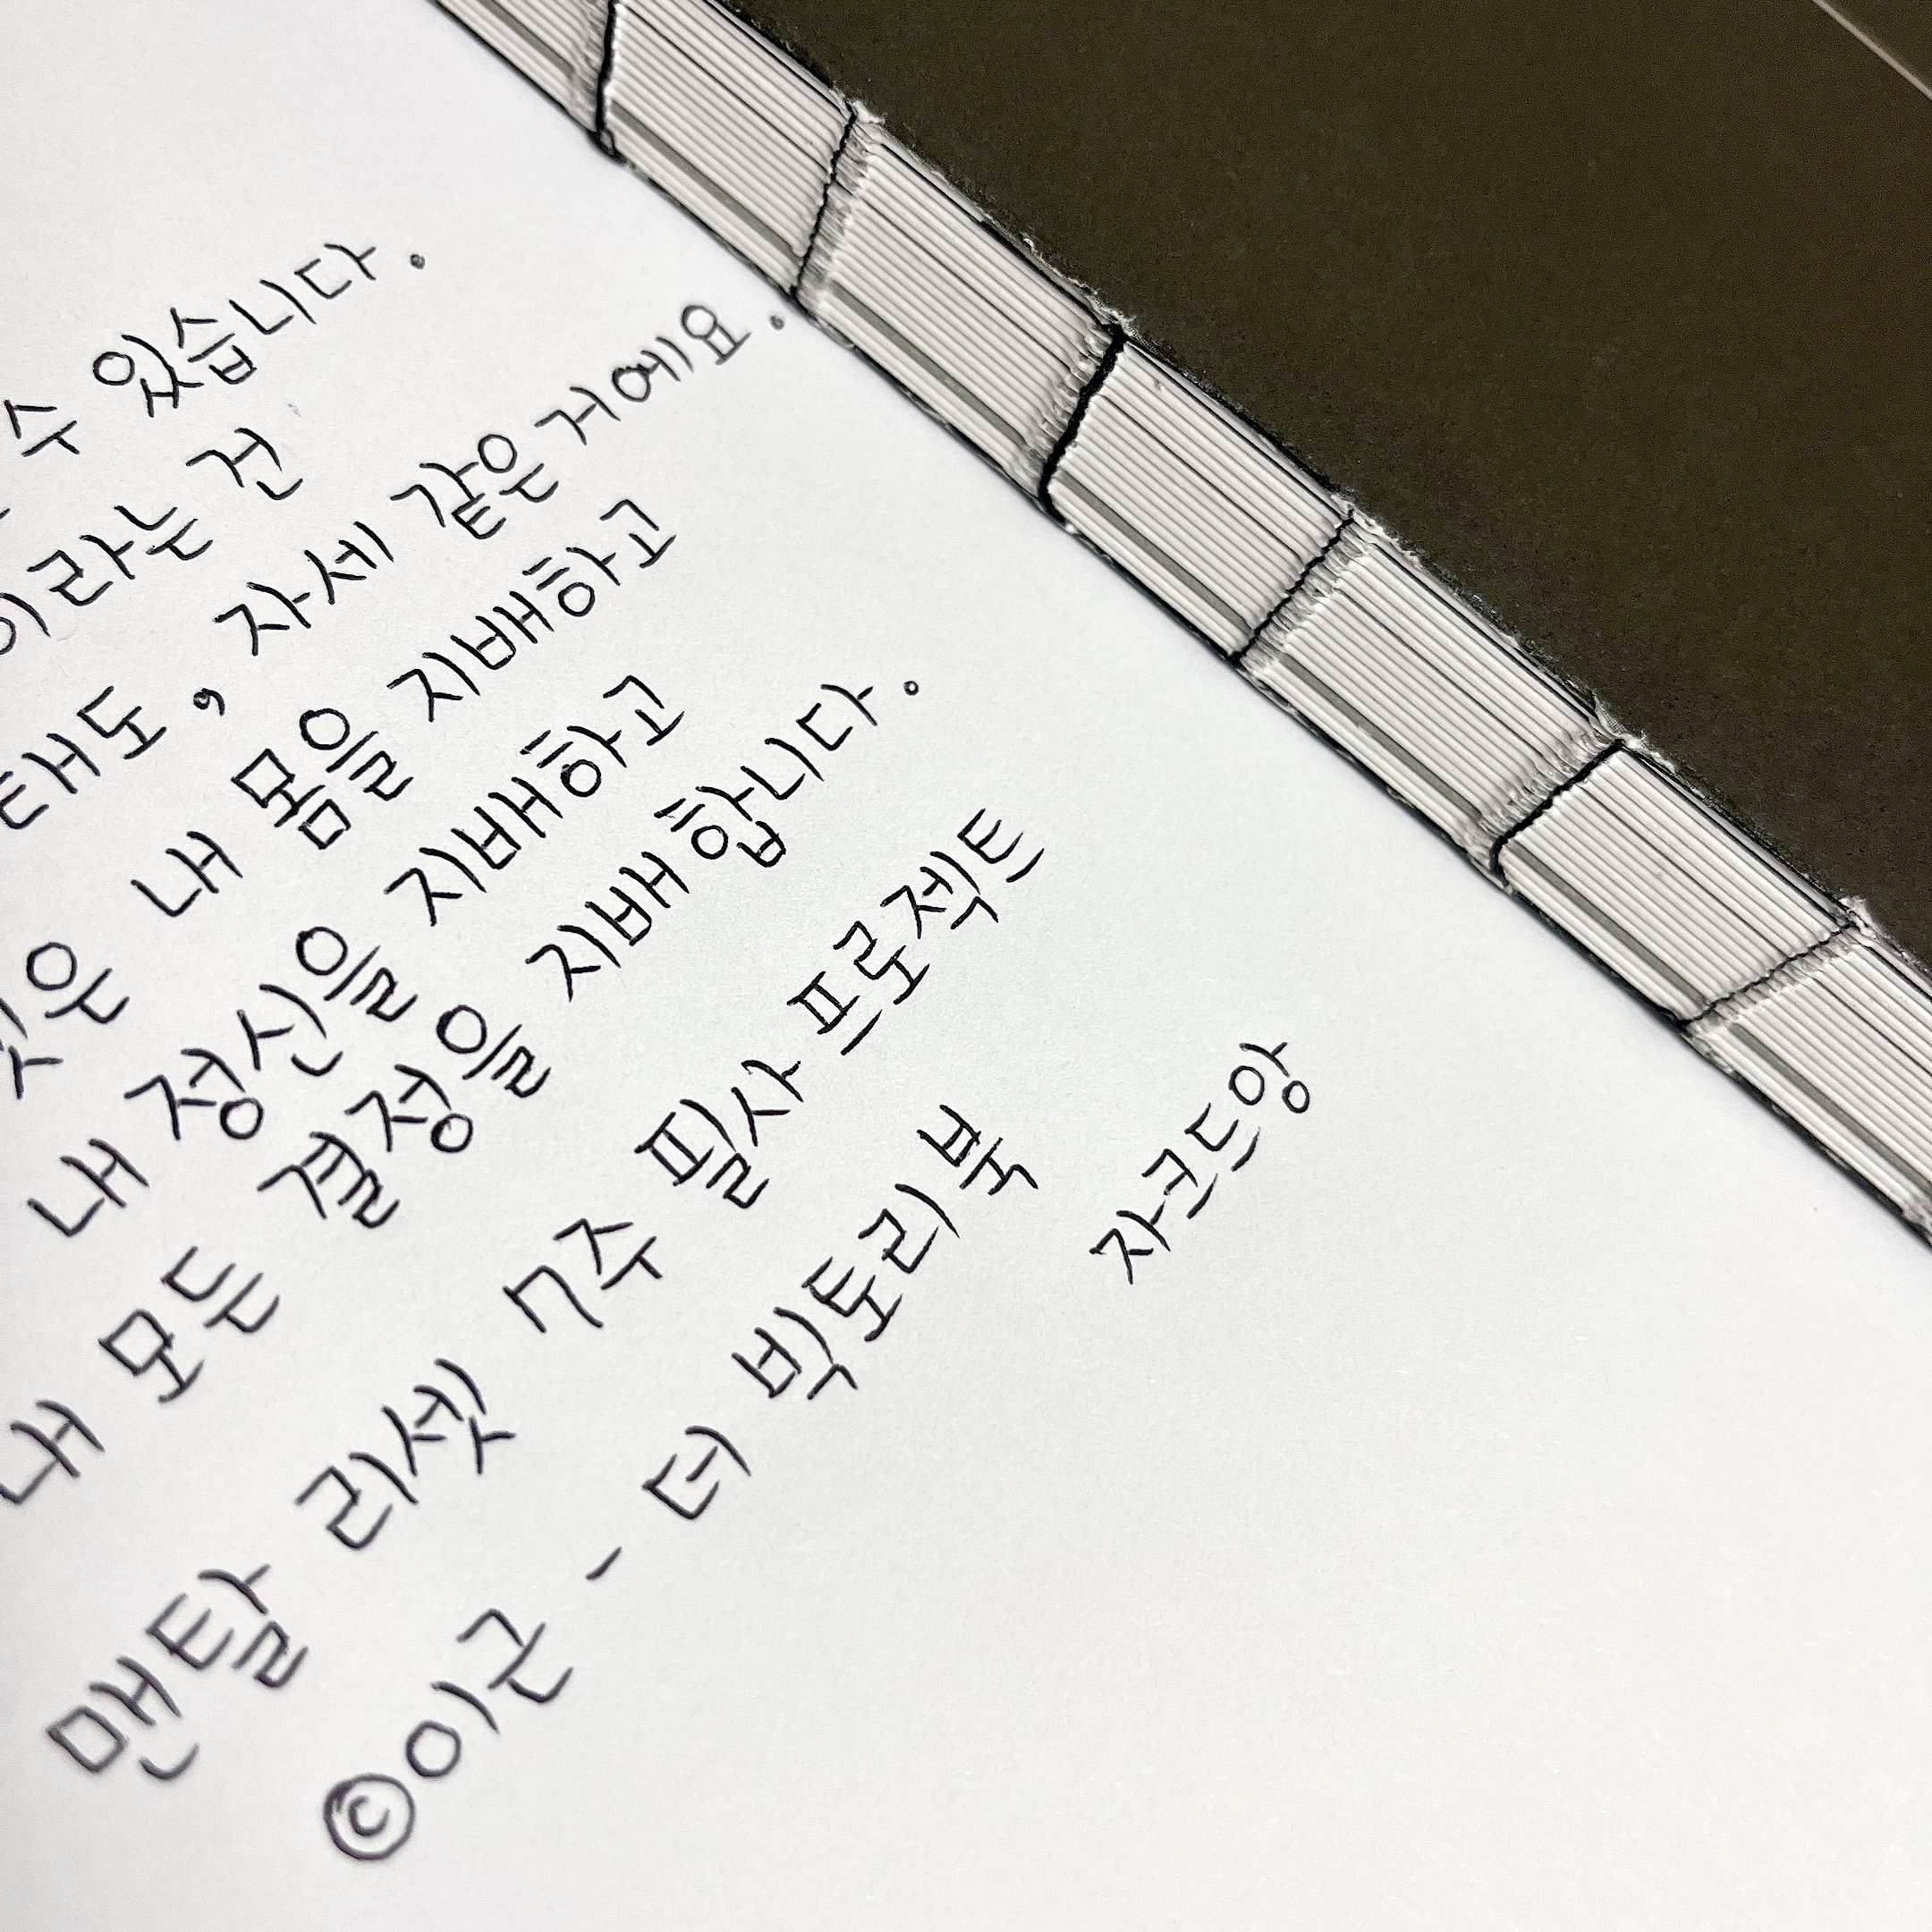 수 있습니다.
이라는 건
태도, 자세 같은 거예요.
것은 내 몸을 지배하고
내 정신을 지배하고
내 모든 결정을 지배합니다.
맨탈 리셋 7주 필사 프로젝트
©이근 - 더 빅토리북
자크드앙